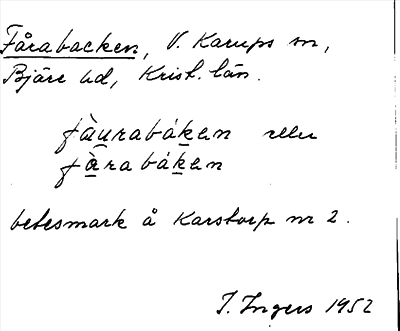 Fårabacken, V. Karups sn,
Bjäre hd, Krist. län.
fàu̲rabák̲en eller
fà̲rabák̲en
betesmark å Karstorp nr 2.
I. Ingers 1952